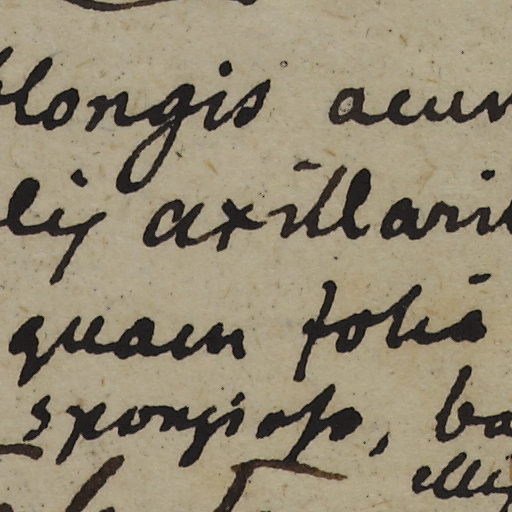 blongis acum
lij axillarib
quam folia
spongioso, ba